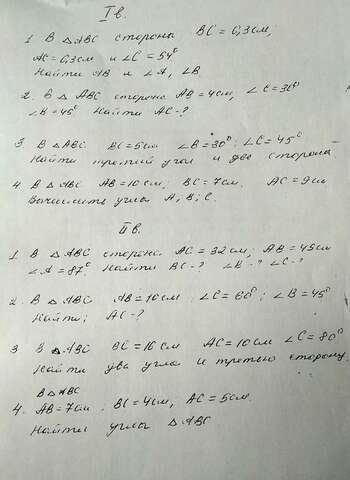 I в.
1. В △ ABC сторона BC = 6,3 см;
AC = 6,3 см и ∠C = 54°
Найти AB и ∠A, ∠B
2. В △ ABC сторона AB = 4 см, ∠C = 30°
∠B = 45° Найти AC - ?
3. В △ ABC BC = 5 см ∠B = 30°; ∠C = 45°
Найти третий угол и две стороны
4. В △ ABC AB = 10 см; BC = 7 см. AC = 9 см
Вычислите углы A; B; C.
II в.
1. В △ ABC сторона AC = 32 см; AB = 45 см
∠A = 87°. Найти BC - ? ∠B - ? ∠C - ?
2. В △ ABC AB = 16 см; ∠C = 60°; ∠B = 45°
Найти; AC - ?
3 В △ ABC BC = 16 см AC = 10 см ∠C = 80°
Найти два угла и третью сторону
В △ ABC
4. AB = 7 см; BC = 4 см, AC = 5 см.
Найти углы △ ABC